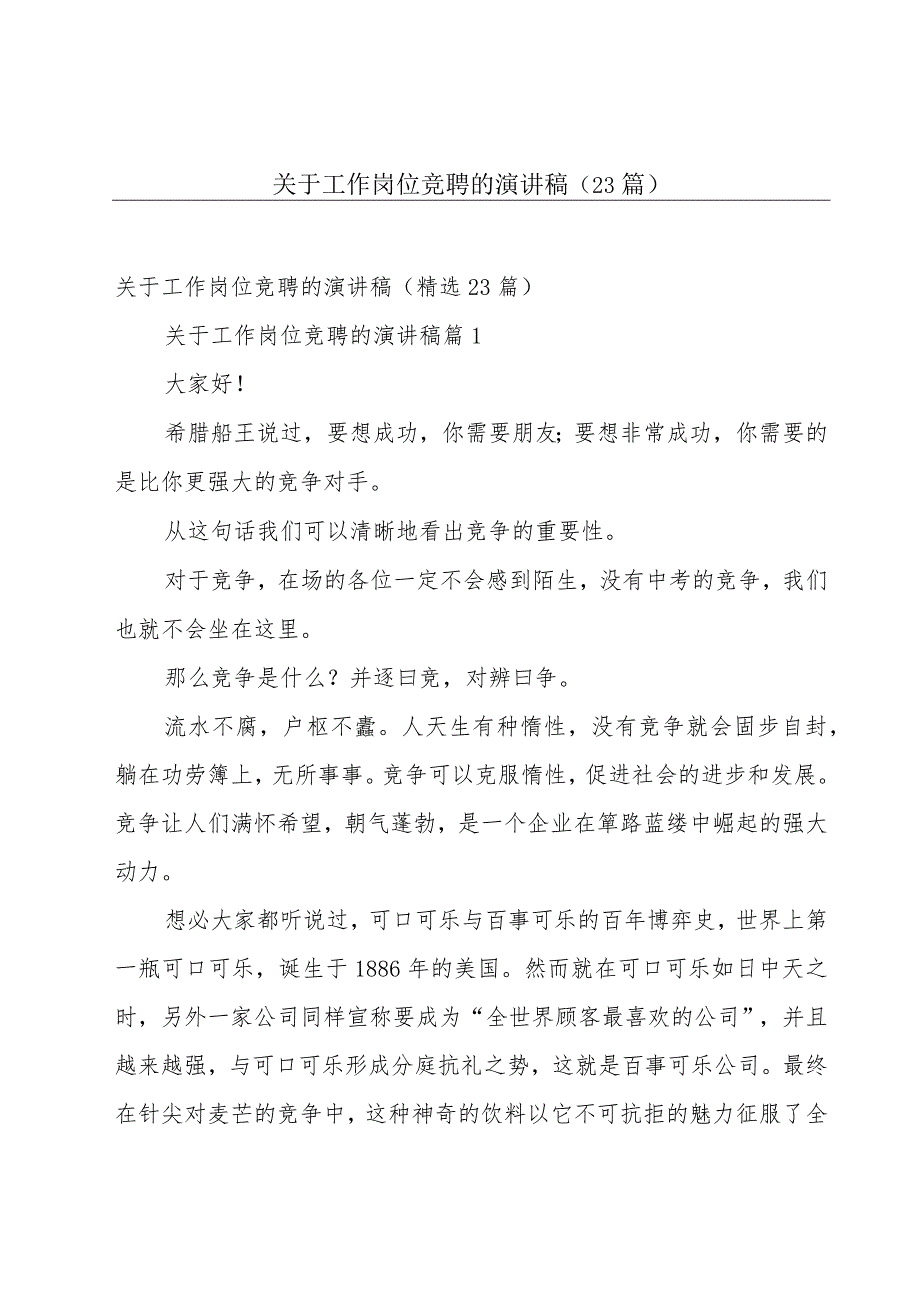 关于工作岗位竞聘的演讲稿（23篇）
关于工作岗位竞聘的演讲稿（精选23篇）
关于工作岗位竞聘的演讲稿篇1
大家好！
希腊船王说过，要想成功，你需要朋友；要想非常成功，你需要的
是比你更强大的竞争对手。
从这句话我们可以清晰地看出竞争的重要性。
对于竞争，在场的各位一定不会感到陌生，没有中考的竞争，我们
也就不会坐在这里。
那么竞争是什么？并逐曰竞，对辨曰争。
流水不腐，户枢不蠹。人天生有种惰性，没有竞争就会固步自封，
躺在功劳簿上，无所事事。竞争可以克服惰性，促进社会的进步和发展。
竞争让人们满怀希望，朝气蓬勃，是一个企业在箪路蓝缕中崛起的强大
动力。
想必大家都听说过，可口可乐与百事可乐的百年博弈史，世界上第
一瓶可口可乐，诞生于1886年的美国。然而就在可口可乐如日中天之
时，另外一家公司同样宣称要成为“全世界顾客最喜欢的公司”，并且
越来越强，与可口可乐形成分庭抗礼之势，这就是百事可乐公司。最终
在针尖对麦芒的竞争中，这种神奇的饮料以它不可抗拒的魅力征服了全